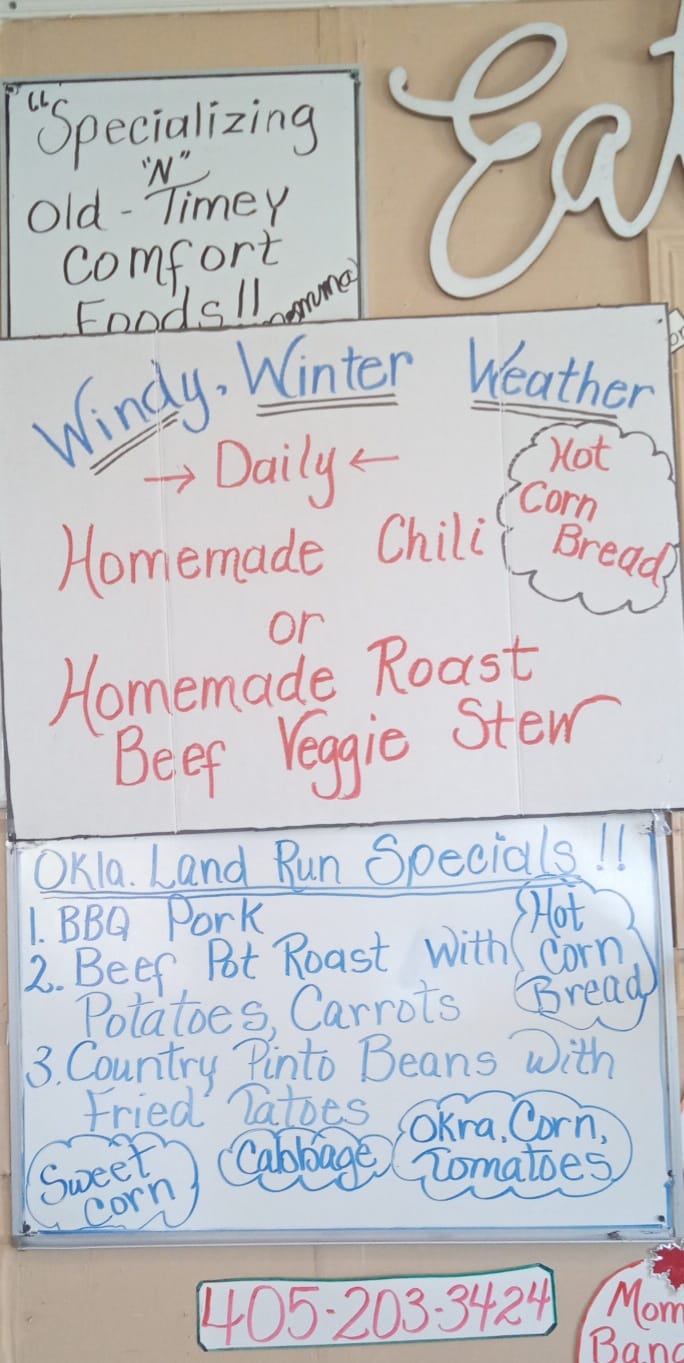 "Specializing
"N"
Old-Timey
Comfort
Foods!!
Eat
Windy, Winter Weather
→ Daily ←
Hot
Corn
Bread
Homemade Chili
or
Homemade Roast
Beef Veggie Stew
Okla. Land Run Specials!!
1. BBQ Pork
2. Beef Pot Roast With
Potatoes, Carrots
Hot
Corn
Bread
3. Country Pinto Beans With
Fried Tatoes
Sweet
Corn
Cabbage
Okra, Corn,
Tomatoes
405-203-3424
Mom
Bana